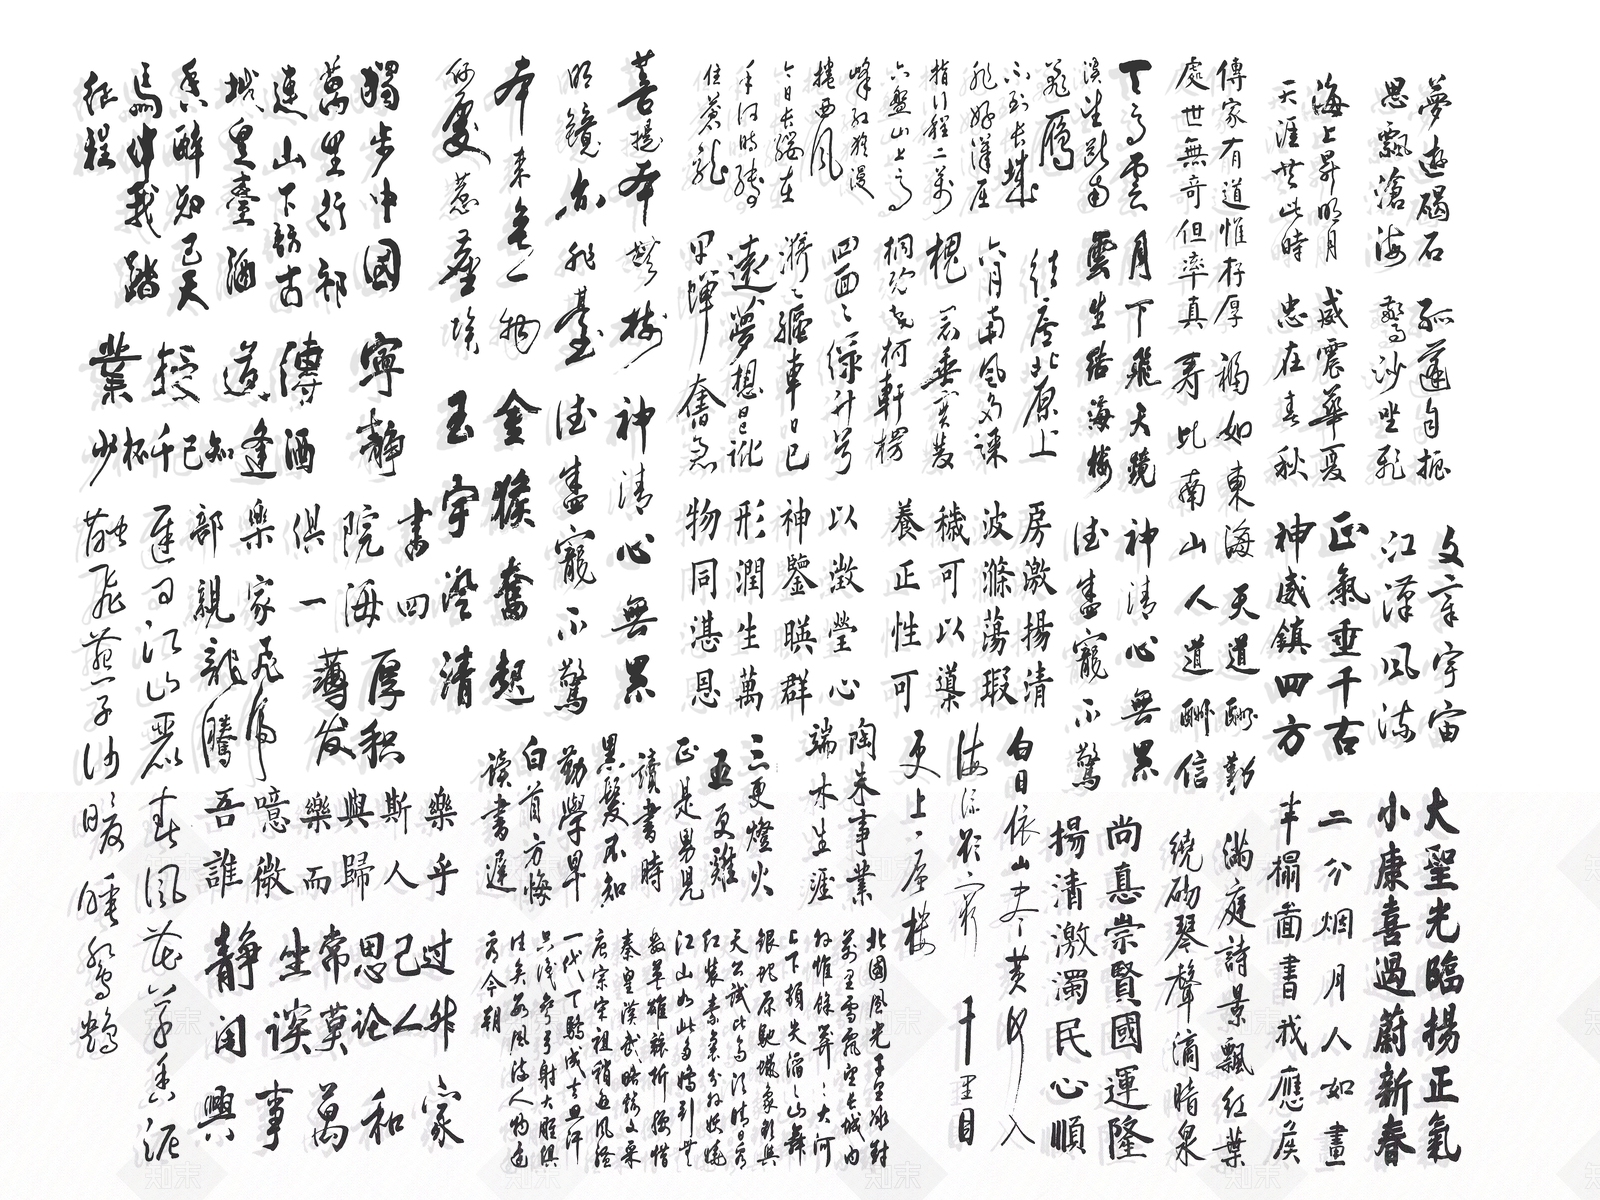 夢遊碣石
思飄滄海
孤蓬自振
驚沙坐飛
海上昇明月
天涯共此時
威震華夏
忠在春秋
傳家有道惟存厚
處世無奇但率真
福如東海
壽比南山
天道酬勤
人道酬信
文章宇宙
江漢風流
正氣垂千古
神威鎮四方
大聖光臨揚正氣
小康喜過蔚新春
二分烟月人如畫
半榻圖書我應
滿庭詩景飄紅葉
繞砌琴聲滴暗泉
尚悳崇賢國運隆
揚清激濁民心順
高雲
淡望斷南
飛雁
不到長城
非好漢屈
指行程二萬
六盤山上高
峰紅旗漫
捲西風
今日長纓在
手何時縛
住蒼龍
月下飛天鏡
雲生結海樓
神清心無累
德盛寵不驚
北原上
六月南風多
槐花垂實
四面
遠夢想
早蟬
房激揚清
波滌蕩瑕
穢可以導
養正性可
以澂瑩心
神鑒暎群
形潤生萬
物同湛恩
白日依山盡黃河入
海流欲窮千里目
更上一層樓
陶朱事業
端木生涯
三更燈火
五更雞
正是男兒
讀書時
黑髮不知
勤學早
白首方悔
读書遲
北國風光千里冰封
萬里雪飄望長城內
外惟餘莽莽大河
上下頓失滔滔山舞
銀蛇原馳蠟象欲與
天公試比高須晴日看
紅裝素裹分外妖嬈
江山如此多嬌引無
數英雄競折腰惜
秦皇漢武略輸文采
唐宗宋祖稍遜風騷
一代天驕成吉思汗
只識彎弓射大雕俱
往矣數風流人物還
看今朝
菩提本無樹
明鏡亦非臺
本來無一物
何處惹塵埃
神清心無累
德盛寵不驚
金猴奮起
玉宇澄清
獨步中國
萬里行祁
連山下訪古
城皇臺酒
香醉知己天
馬伴我踏
征程
寧靜
傳道授業
酒逢知己千杯少
書四
院海
俱一
樂家
部親
厚积
薄发
飛虎
龍騰
遲日江山麗春風花草香泥
融飛燕子沙暖睡鴛鴦
樂乎
斯人
與歸
樂而
噫微
吾誰
靜坐常思己过
闲谈莫论人非
家和萬事興